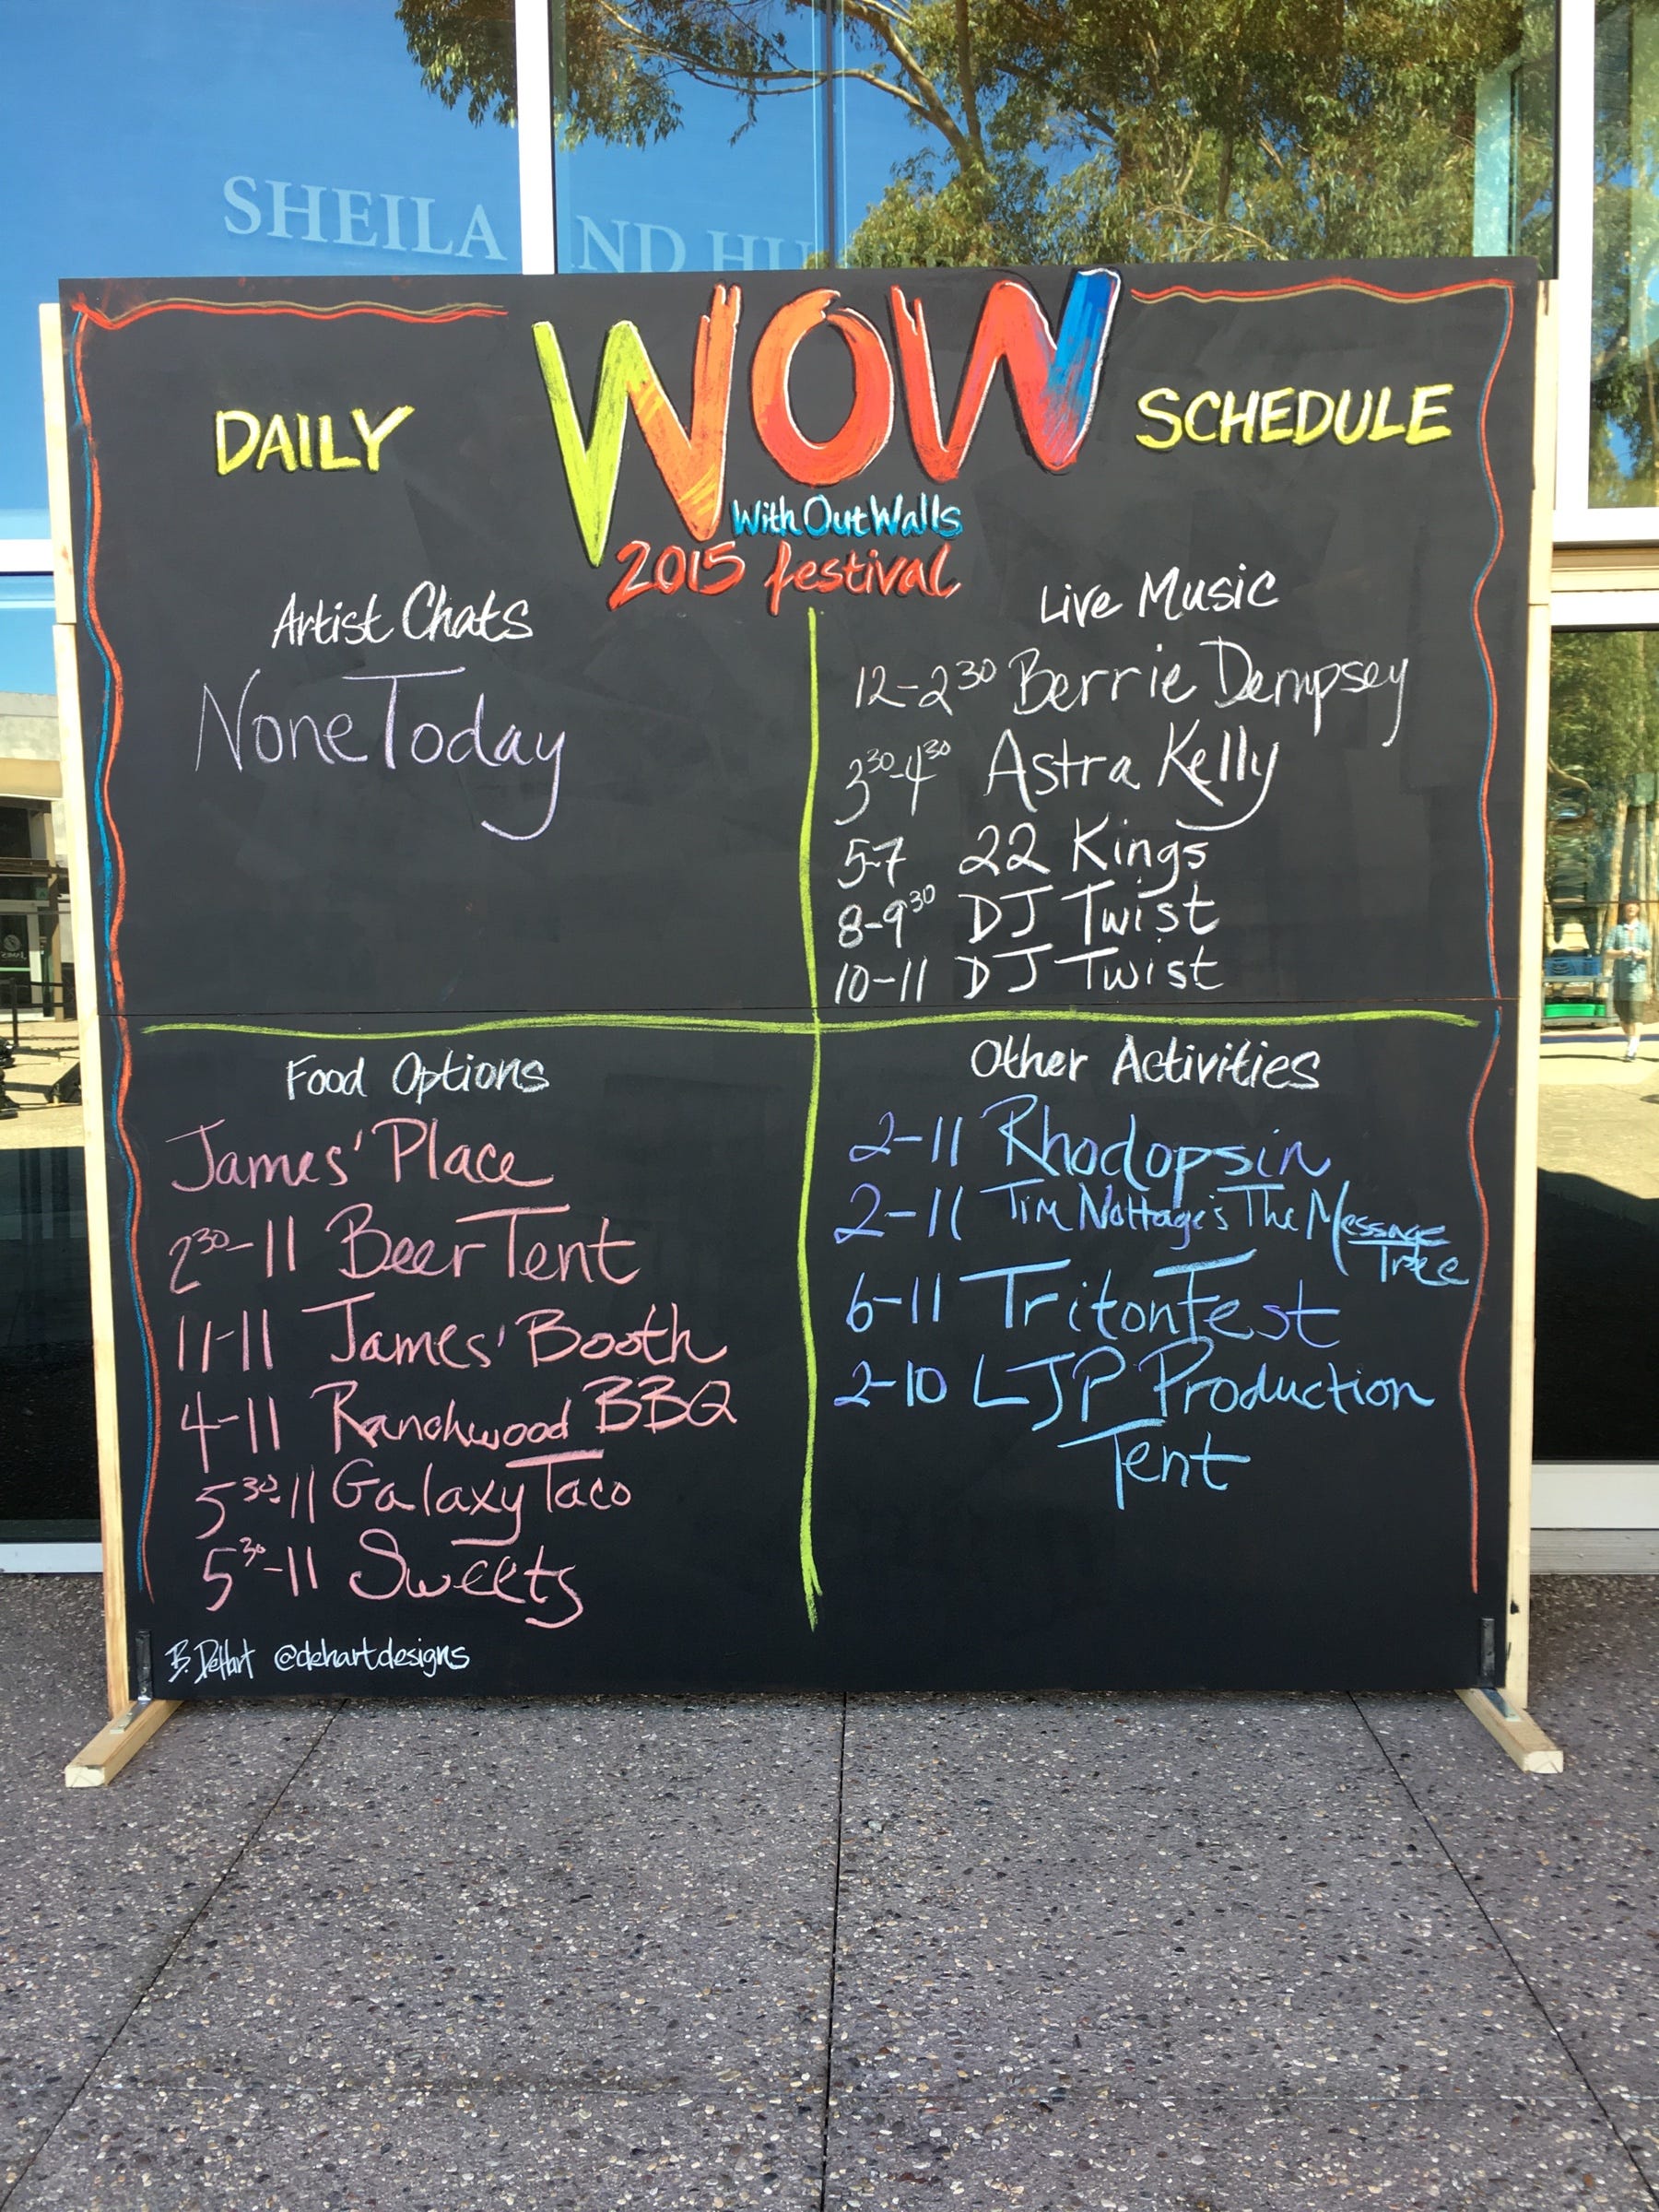 SHEILA AND HU
DAILY WOW SCHEDULE
WithOutWalls
2015 festival
Artist Chats
None Today
Live Music
12-2³⁰ Berrie Dempsey
3³⁰-4³⁰ Astra Kelly
5-7 22 Kings
8-9³⁰ DJ Twist
10-11 DJ Twist
Food Options
James' Place
2³⁰-11 Beer Tent
11-11 James' Booth
4-11 Ranchwood BBQ
5³⁰-11 Galaxy Taco
5³⁰-11 Sweets
Other Activities
2-11 Rhodopsin
2-11 Tim Nottage's The Message
Tree
6-11 TritonFest
2-10 LJP Production
Tent
B. DeHart @dehartdesigns